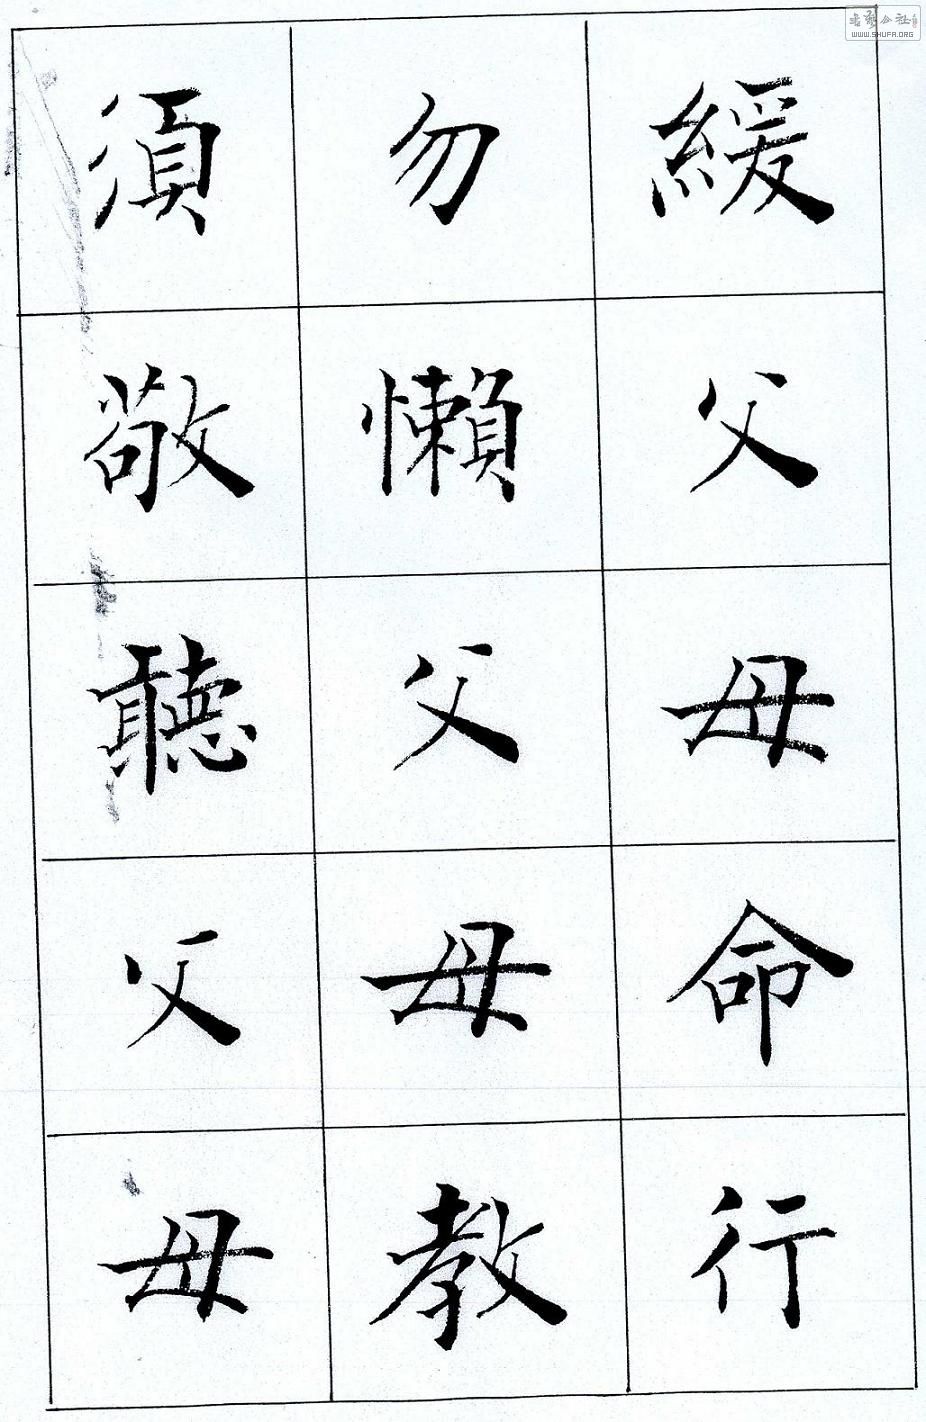 緩父母命行
勿懶父母教
須敬聽父母
WWW.SHUFA.ORG